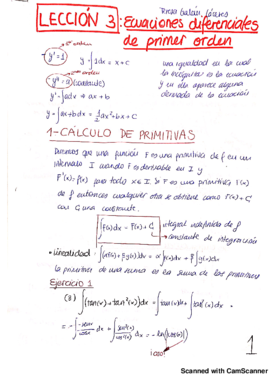 Rosa Galán
LECCIÓN 3: Ecuaciones diferenciales
de primer orden
1er orden
y' = 1 y = ∫1dx = x + C
orden
y'' = a (constante)
y' = ∫adx ⇒ ax + b
y = ∫ax+bdx = 1/2 ax² + bx + C
una igualdad en la cual
la incógnita es la ecuación
y en ella aparece alguna
derivada de la ecuación
1-CÁLCULO DE PRIMITIVAS
Diremos que una función F es una primitiva de f en un
intervalo I cuando F es derivable en I y
F'(x) = f(x) para todo x ∈ I. Si F es una primitiva F(x)
de f entonces cualquier otra se obtiene como F(x) + C
con C una constante.
∫f(x)dx = F(x) + C
integral indefinida de f
constante de integración
• linealidad: ∫(αf(x)+βg(x))dx = α∫f(x)dx + β∫g(x)dx
la primitiva de una suma es la suma de las primitivas
Ejercicio 1
(8) ∫(tan(x) + tan³(x))dx = ∫tan(x)dx + ∫tan³(x)dx =
= -∫-senx/cosx dx + ∫sen³(x)/cos³(x) dx = -ln(|cos(x)|)
1
Scanned with CamScanner